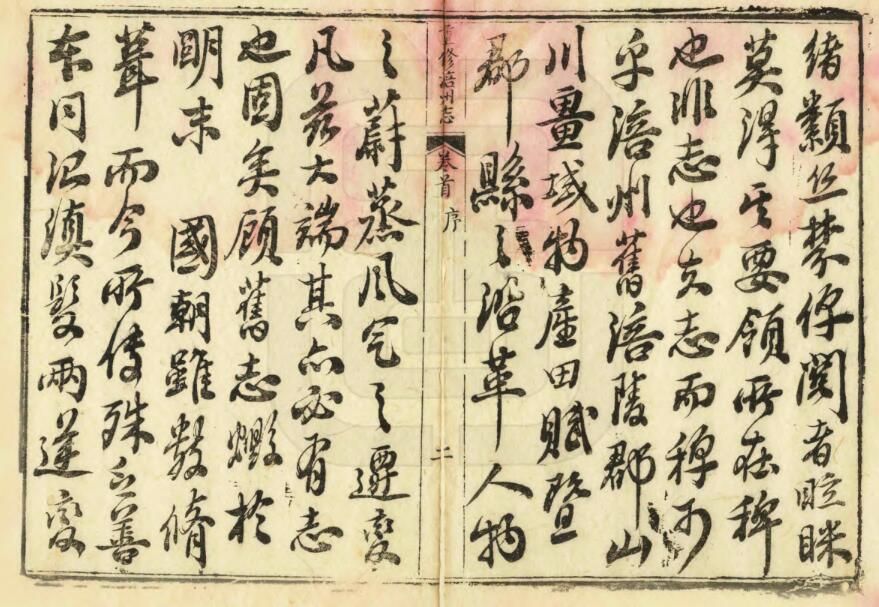 緒纇丝棼俾閱者眩眯
莫得其要領所在稗
也非志也夫志而稗可
乎涪州舊涪陵郡山
川畺域物產田賦暨
郡縣之沿革人物
重修涪州志 卷首 序 二
之蔚蒸風气之遷變
凡茲大端其亦必有志
也固矣顧舊志燬於
明末 國朝雖數脩
葺而今所傳殊乏善
本同治滇髮兩逆變